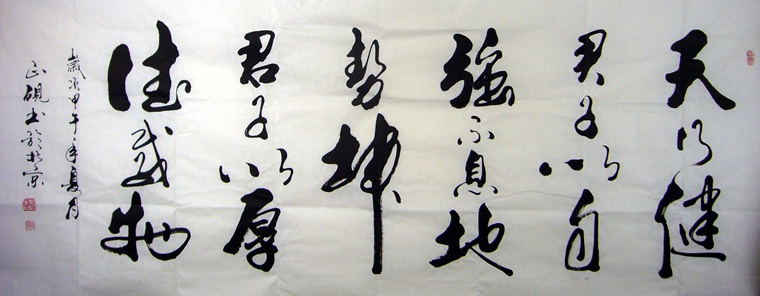 天行健
君子以自
強不息地
勢坤
君子以厚
德載物
歲次甲午年夏月
正硯書於北京